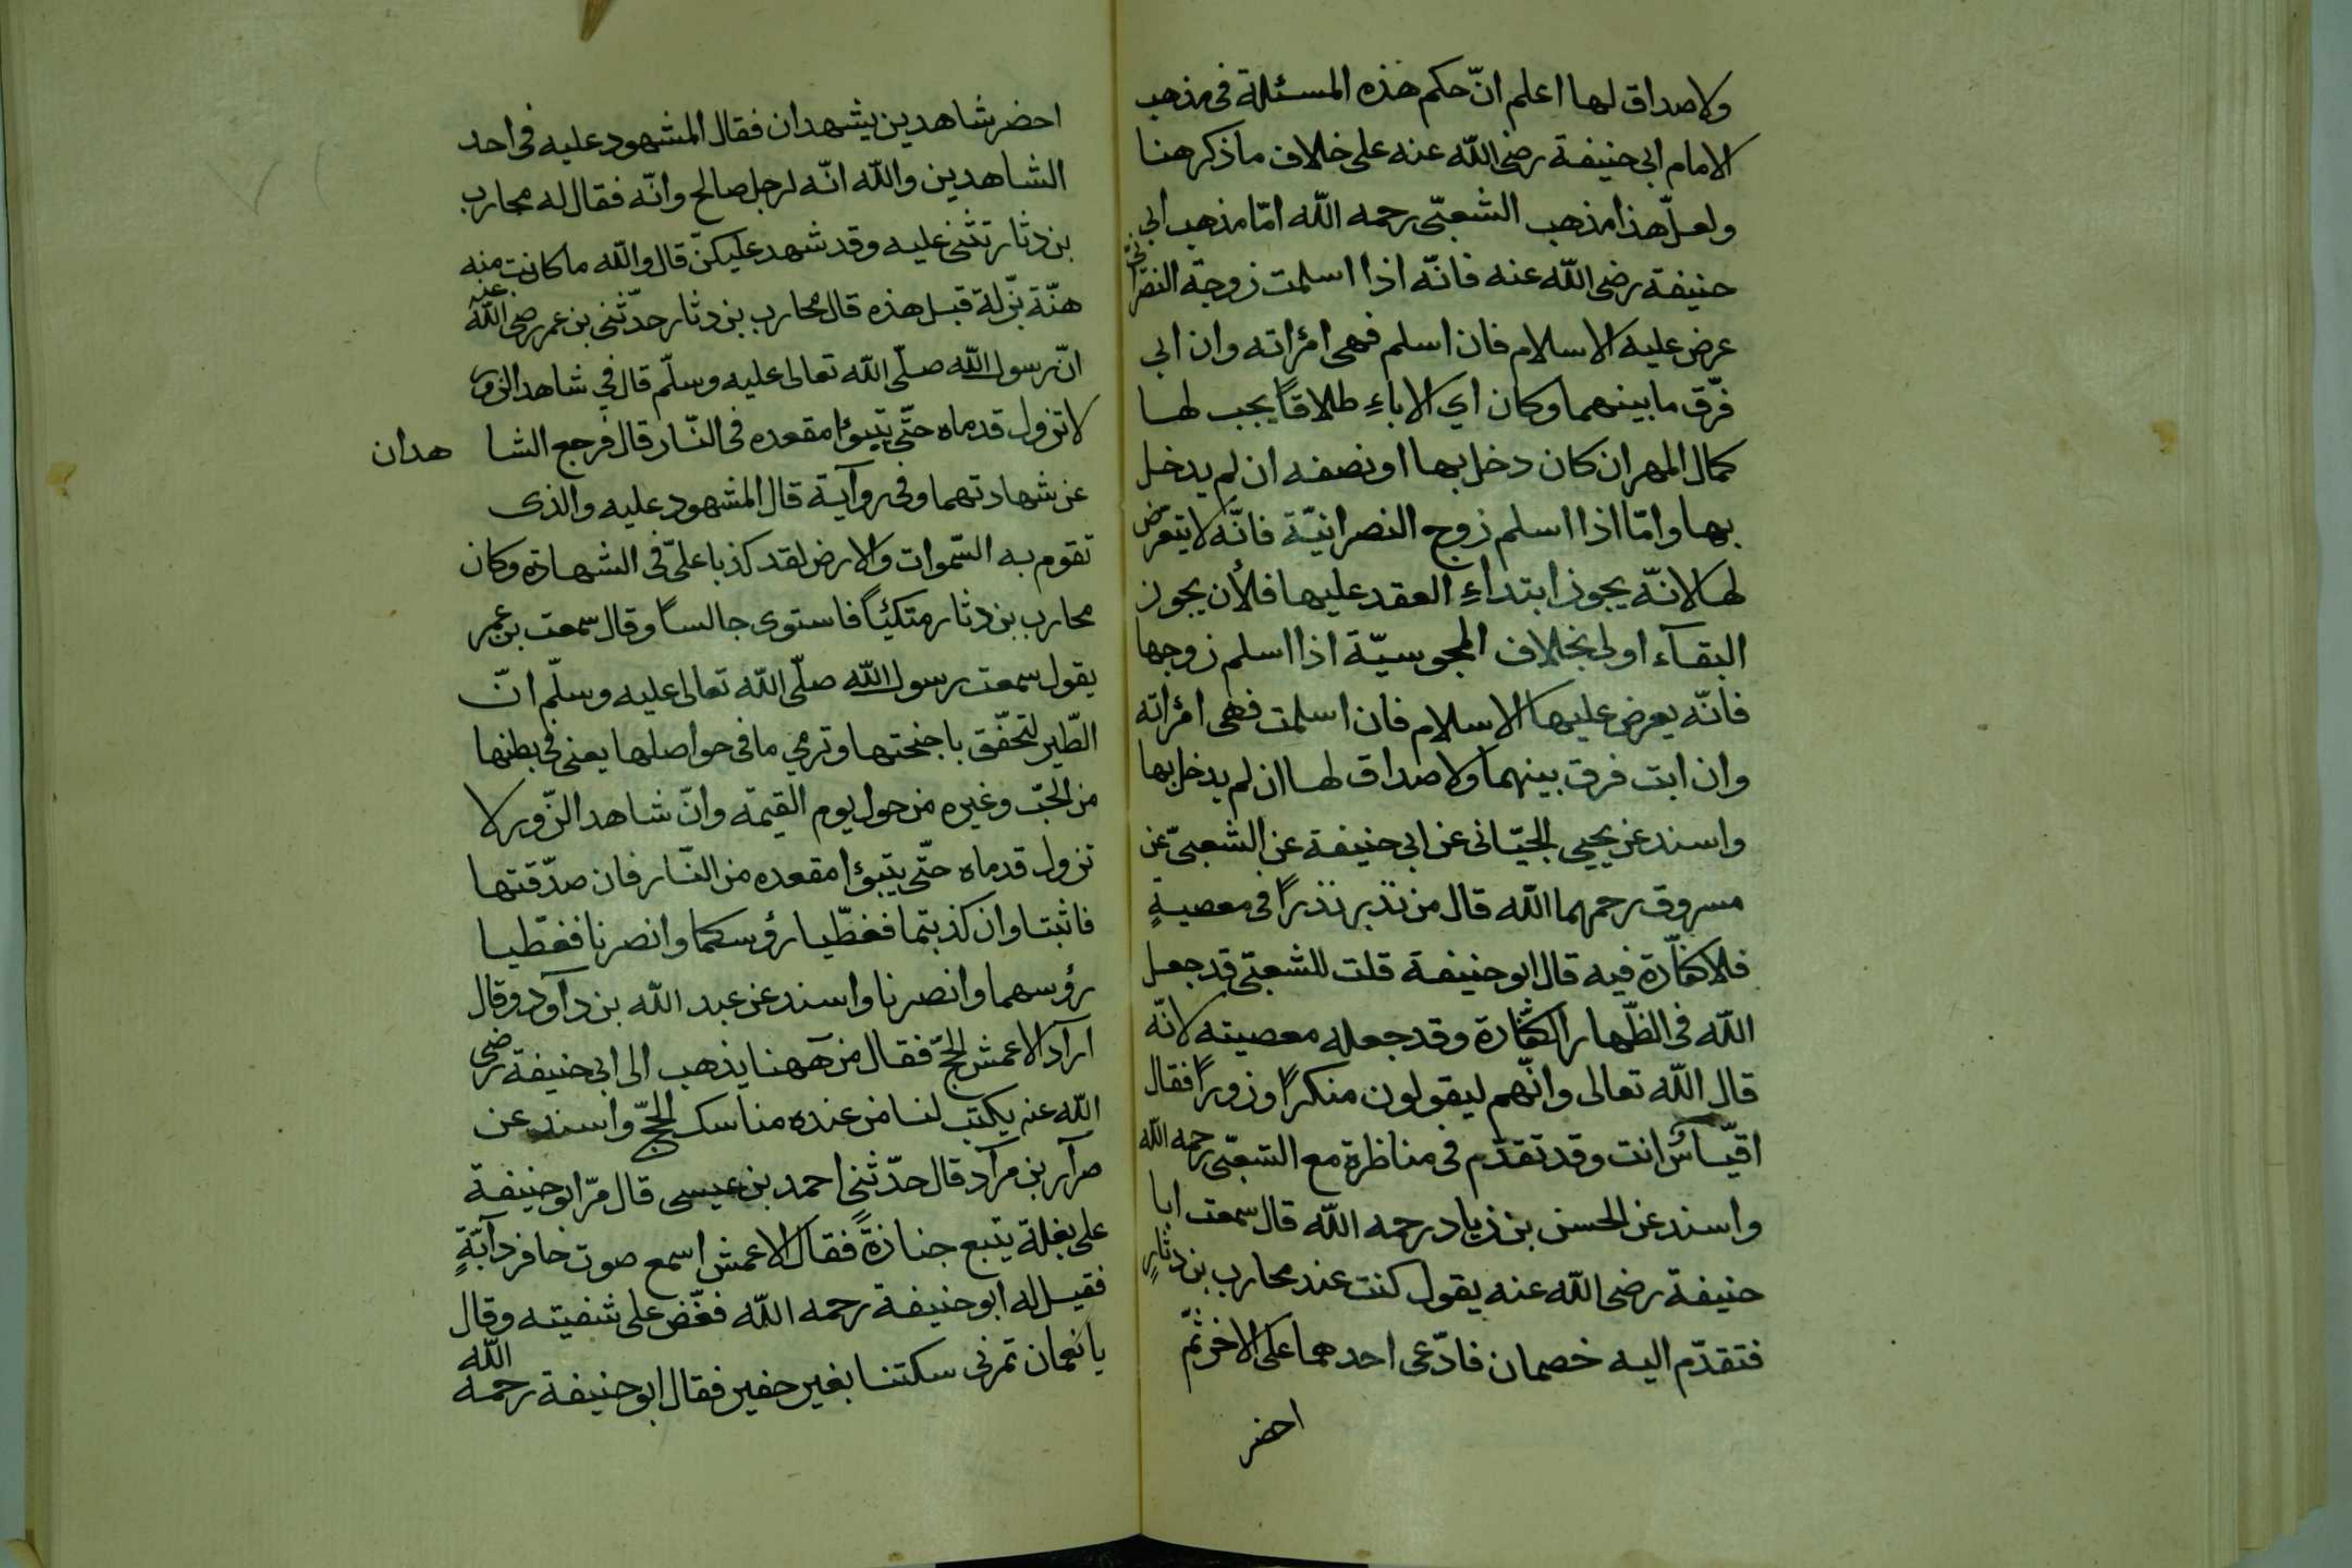 ولاصداق لها اعلم انّ حكم هذه المسئلة فى مذهب
الامام ابى حنيفة رضى الله عنه على خلاف ما ذكر هنا
ولعلّ هذا مذهب الشعبّى رحمه الله امّا مذهب ابى
حنيفة رضى الله عنه فانّه اذا اسلمت زوجة النصرانّى
عرض عليه الاسلام فان اسلم فهى امرأته وان ابى
فرّق ما بينهما وكان اي الاباءِ طلاقاً يجب لها
كمال المهر ان كان دخل بها او نصفه ان لم يدخل
بها وامّا اذا اسلم زوج النصرانيّة فانّه لا يتعرّض
لها لانّه يجوز ابتداءِ العقد عليها فلأن يجوز
البقآء اولى بخلاف المجوسيّة اذا اسلم زوجها
فانّه يعرض عليها الاسلام فان اسلمت فهى امرأته
وان ابت فرق بينهما ولا صداق لها ان لم يدخل بها
واسند عن يحيى الحبّانى عن ابى حنيفة عن الشعبىّ عن
مسروق رحمهما الله قال من نذبر نذبراً فى معصيةٍ
فلا كفّارة فيه قال ابو حنيفة قلت للشعبّى قد جعل
الله فى الظّهار الكفّارة وقد جعله معصيته لانّه
قال الله تعالى وانّهم ليقولون منكراً وزوراً فقال
اقيّاسٌ انت وقد تقدّم فى مناظرة مع الشعبّى رحمه الله
واسند عن الحسن بن زياد رحمه الله قال سمعت ابا
حنيفة رضى الله عنه يقول كنت عند محارب بن دثارٍ
فتقدّم اليه خصمان فادّعى احدهما على الاخر ثمّ
احضر
احضر شاهدين يشهدان فقال المشهود عليه فى احد
الشاهدين والله انّه لرجل صالح وانّه فقال له محارب
بن دثار تثنى عليه وقد شهد عليكنّ قال والله ما كانت منه
هنّة بزّلة قبل هذه قال محارب بن دثار حدّثنى بن عمر رضى الله عنه
انّ رسول الله صلّى الله تعالى عليه وسلّم قال في شاهد الزور
لا تزول قدماه حتّى يتبوّا مقعده فى النّار قال فرجع الشا هدان
عن شهادتهما وفى روآية قال المشهود عليه والذى
تقوم به السّموات والارض لقد كذبا علىّ فى الشهادة وكان
محارب بن دثار متكئياً فاستوى جالساً وقال سمعت بن عمر
يقول سمعت رسول الله صلّى الله تعالى عليه وسلّم انّ
الطّير لتخفّق باجنحتها وترمي ما فى حواصلها يعنى فى بطنها
من الحبّ وغيره من حول يوم القيمة وانّ شاهد الزّور لا
تزول قدماه حتّى يتبوّا مقعده من النّار فان صدّقتها
فاثبتا وان كذبتما فغطّيا رؤسكما وانصرنا فغطّيا
رؤسهما وانصرنا واسند عن عبد الله بن دآود وقال
ارآد الاعمش الحجّ فقال من ههنا يذهب الى ابى حنيفة رضى
الله عنه يكتب لنا من عنده مناسك الحجّ واسند عن
صرآر بن مرآد قال حدّثنى احمد بن عيسى قال مرّ ابو حنيفة
على بغلة يتبع جنازةً فقال الاعمش اسمع صوت حافر دآبّةٍ
فقيل له ابو حنيفة رحمه الله فغّض على شفيته وقال
يا نعمان تمرنى سكتنا بغير حفير فقال ابو حنيفة رحمه الله